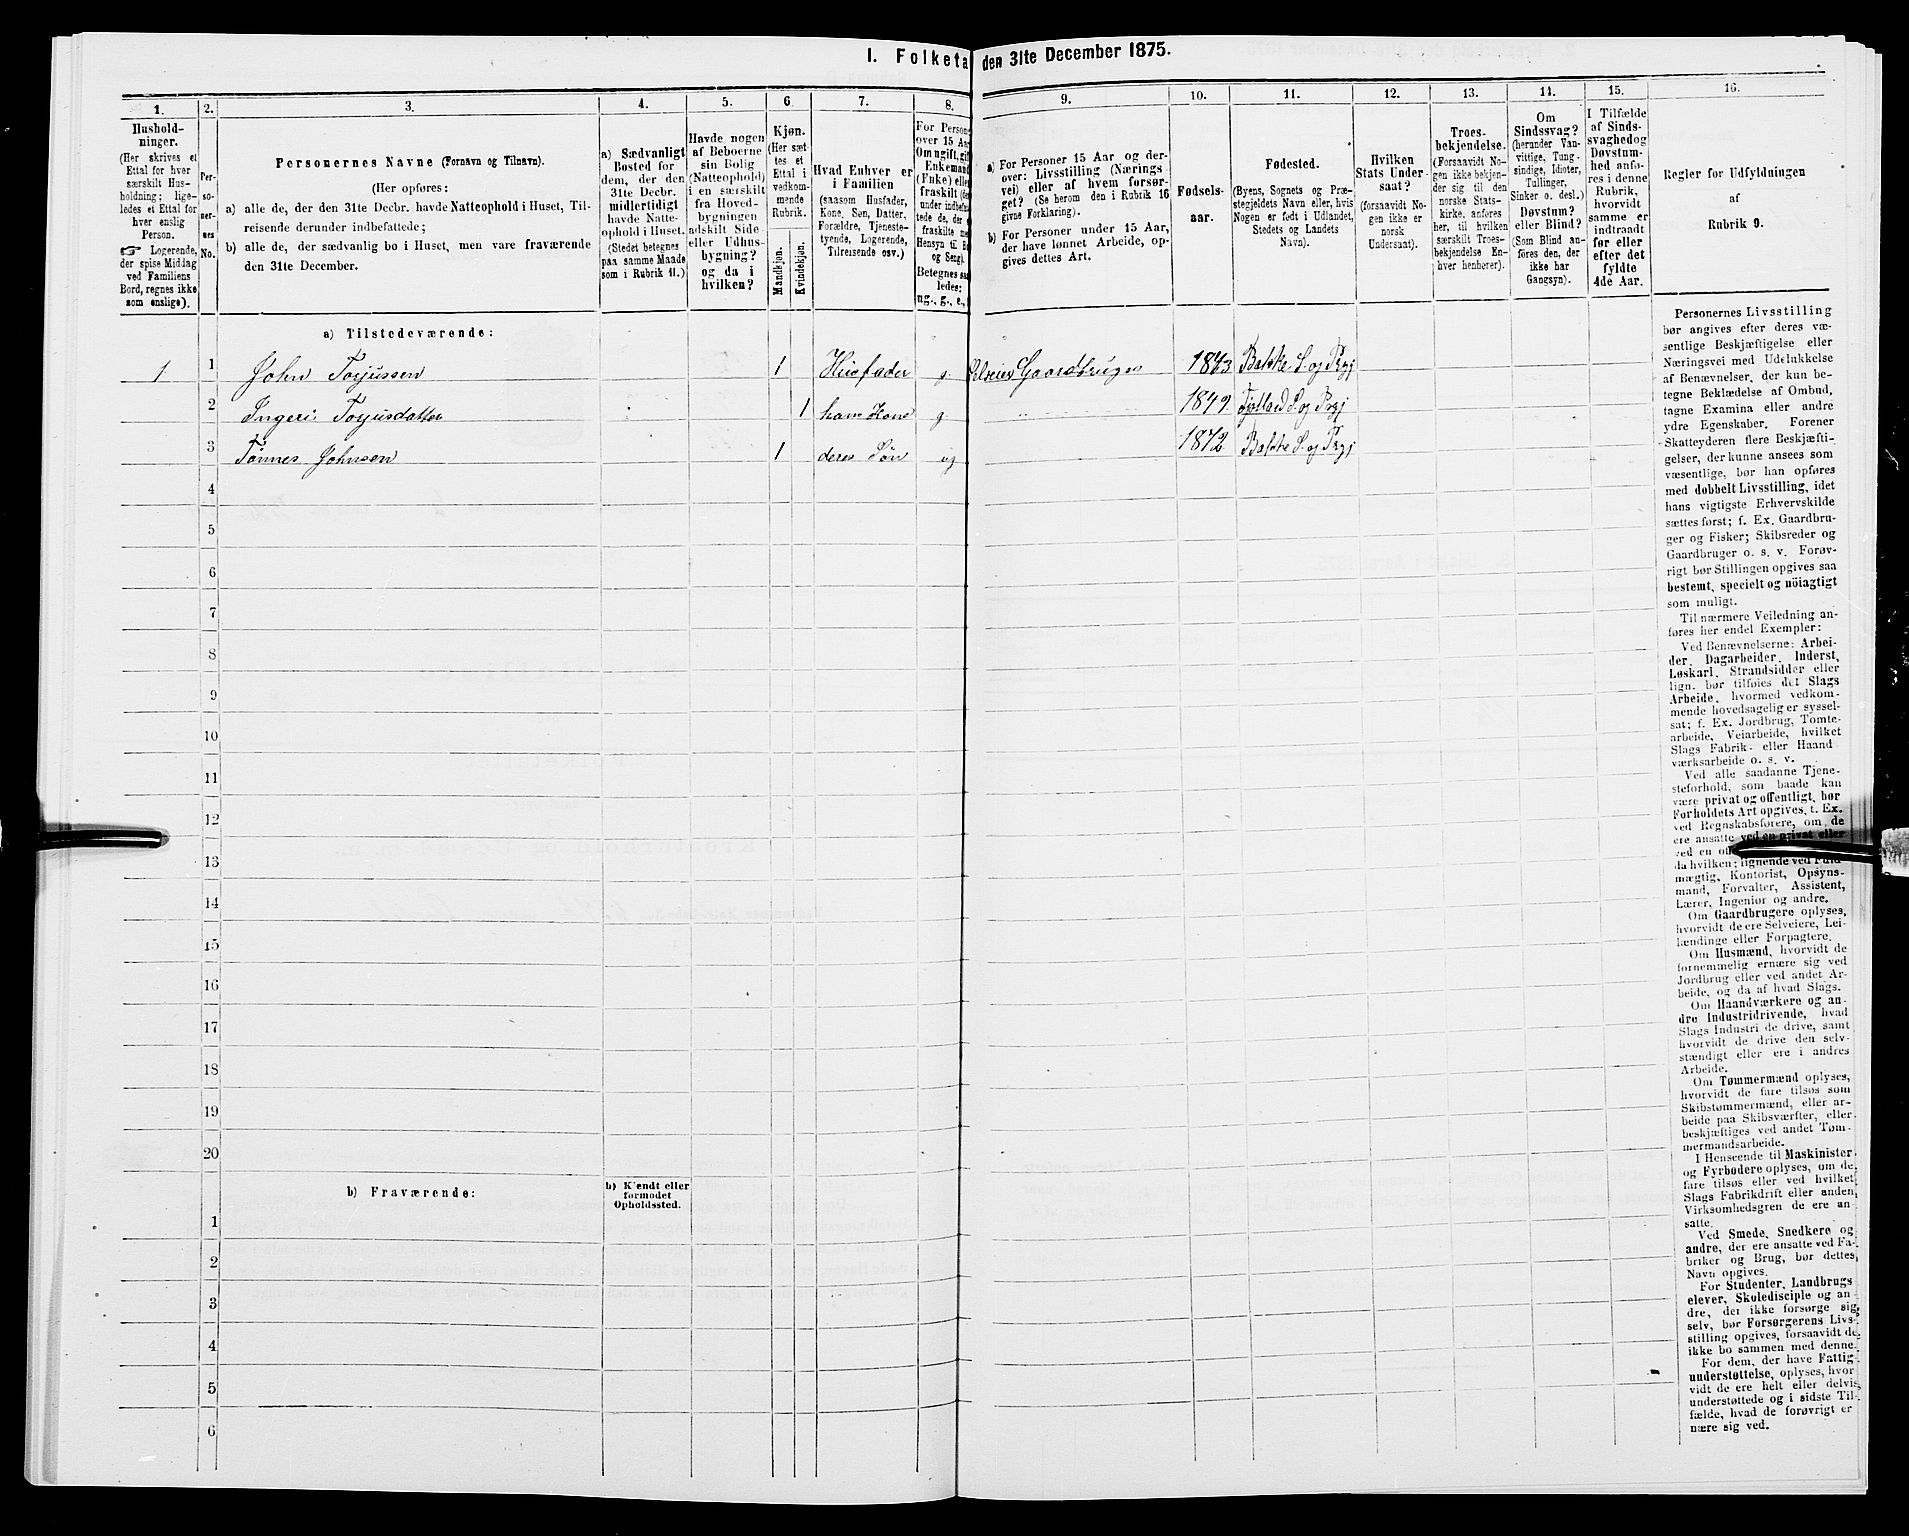 I. Folketa den 31te December 1875.
1. 2. 3. 4. 5. 6. 7. 8. 9. 10. 11. 12. 13. 14. 15. 16.
Hushold-
ninger.
(Her skrives et
Ettal for hver
særskilt Hus-
holdning; lige-
ledes et Ettal for
hver enslig
Person.
☞ Logerende,
der spise Middag
ved Familiens
Bord, regnes ikke
som enslige).
Per-
soner-
nes
No.
Personernes Navne (Fornavn og Tilnavn).
(Her opføres:
a) alle de, der den 31te Decbr. havde Natteophold i Huset, Til-
reisende derunder indbefattede;
b) alle de, der sædvanlig bo i Huset, men vare fraværende
den 31te December.
a) Sædvanligt
Bosted for
dem, der den
31te Decbr.
midlertidigt
havde Natte-
ophold i Huset.
(Stedet betegnes
paa samme Maade
som i Rubrik 11.)
Havde nogen
af Beboerne
sin Bolig
(Natteophold)
i en særskilt
fra Hoved-
bygningen
adskilt Side-
eller Udhus-
bygning?
og da i
hvilken?
Kjøn.
(Her sæt-
tes et
Ettal i
vedkom-
mende
Rubrik.
Mandkjøn.
Kvindekjøn.
Hvad Enhver er
i Familien
(saasom Husfader,
Kone, Søn, Datter,
Forældre, Tjeneste-
tyende, Logerende,
Tilreisende osv.)
For Persone
over 15 Aar
Om ugift, gif
Enkemand
(Enke) elle
fraskilt (de
under indbefat-
tede de, der
fraskilte me
Hensyn til B
og Seng).
Betegnes saa
ledes:
ug., g., e.,
a) For Personer 15 Aar og der-
over: Livsstilling (Nærings
vei) eller af hvem forsør-
get? (Se herom den i Rubrik 16
givne Forklaring).
b) For Personer under 15 Aar,
der have lønnet Arbeide, op-
gives dettes Art.
Fødsels-
aar.
Fødested.
(Byens, Sognets og Præ-
stegjeldets Navn eller, hvis
Nogen er født i Udlandet,
Stedets og Landets
Navn).
Hvilken
Stats Under-
saat?
(forsaavidt No-
gen ikke er
norsk
Undersaat).
Troes-
bekjendelse.
(Forsaavidt No-
gen ikke bekjen-
der sig til den
norske Stats-
kirke, anføres
her, til hvilken
særskilt Troes-
bekjendelse En-
hver henhører).
Om
Sindssvag?
(herunder Van-
vittige, Tung-
sindige, Idioter,
Tullinger,
Sinker o. desl.)
Døvstum?
eller Blind?
(Som Blind an-
føres den, der
ikke har
Gangsyn).
I Tilfælde
af Sinds-
svaghed og
Døvstum-
hed anfø-
res i denne
Rubrik,
hvorvidt
samme er
indtraadt
før eller
efter det
fyldte
4de Aar.
Regler for Udfyldningen
af
Rubrik 9.
a) Tilstedeværende:
1 1 John Torjussen 1 Huusfader g. Selveier Gaardbruger 1843 Bakke S. og Prgj
2 Ingeri Torjusdatter 1 hans Kone g. 1849 Fjotland S. og Prgj
3 Tønnes Johnsen 1 deres Søn ug 1872 Bakke S. og Prgj
4
5
6
7
8
9
10
11
12
13
14
15
16
17
18
19
20
b) Fraværende:
b) Kjendt eller
formodet
Opholdssted.
1
2
3
4
5
6
Personernes Livsstilling
bør angives efter deres væ-
sentlige Beskjæftigelse eller
Næringsvei med Udelukkelse
af Benævnelser, der kun be-
tegne Beklædelse af Ombud,
tagne Examina eller andre
ydre Egenskaber. Forener
Skatteyderen flere Beskjæfti-
gelser, der kunne ansees som
væsentlige, bør han opføres
med dobbelt Livsstilling, idet
hans vigtigste Erhvervskilde
sættes først; f. Ex. Gaardbru-
ger og Fisker; Skibsreder og
Gaardbruger o. s. v. Forøv-
rigt bør Stillingen opgives saa
bestemt, specielt og nöiagtigt
som muligt.
Til nærmere Veiledning an-
føres her endel Exempler:
Ved Benævnelserne: Arbei-
der, Dagarbeider, Inderst,
Løskarl, Strandsidder eller
lign. bør tilføies det Slags
Arbeide, hvormed vedkom-
mende hovedsagelig er syssel-
sat; f. Ex. Jordbrug, Tomte-
arbeide, Veiarbeide, hvilket
Slags Fabrik- eller Haand
værksarbeide o. s. v.
Ved alle saadanne Tjene-
steforhold, som baade kan
være privat og offentligt, bør
Forholdets Art opgives, t. Ex.
ved Regnskabsførere, om de
ere ansatte ved en privat eller
ved en off
da hvilken; lignende ved Fuld-
mægtig, Kontorist, Opsyns-
mand, Forvalter, Assistent,
Lærer, Ingeniør og andre.
Om Gaardbrugere oplyses,
hvorvidt de ere Selveiere, Lei-
lændinge eller Forpagtere.
Om Husmænd, hvorvidt de
fornemmelig ernære sig ved
Jordbrug eller ved andet Ar-
beide, og da af hvad Slags.
Om Haandværkere og an-
dre Industridrivende, hvad
Slags Industri de drive, samt
hvorvidt de drive den selv-
stændigt eller ere i andres
Arbeide.
Om Tømmermænd oplyses,
hvorvidt de fare tilsøs som
Skibstømmermænd, eller ar-
beide paa Skibsværfter, eller
beskjæftiges ved andet Tøm-
mermandsarbeide.
I Henseende til Maskinister
og Fyrbødere oplyses, om de
fare tilsøs eller ved hvilket
Slags Fabrikdrift eller anden
Virksomhedsgren de ere an-
satte.
Ved Smede, Snedkere og
andre, der ere ansatte ved Fa-
briker og Brug, bør dettes
Navn opgives.
For Studenter, Landbrugs-
elever, Skoledisciple og an-
dre, der ikke forsørge sig
selv, bør Forsørgerens Livs-
stilling opgives, forsaavidt de
ikke bo sammen med denne.
For dem, der have Fattig-
understøttelse, oplyses, hvor-
vidt de ere helt eller delvis
understøttede og i sidste Til-
fælde, hvad de forøvrigt er
nære sig ved.